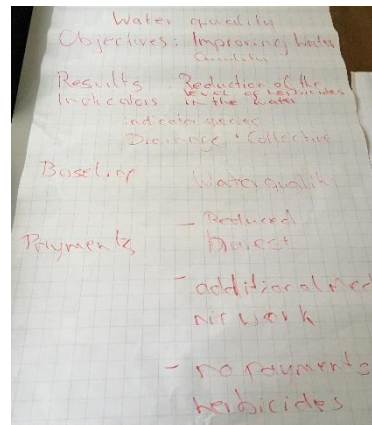 Water quality
Objectives: Improving Water
Quality
Results Reduction of the
Indicators level of herbicides
in the water
indicator species
Drainage • Collective
Baseline Water quality
- Reduced
Payments harvest
- additional Mec
nic work
- no payments
herbicides